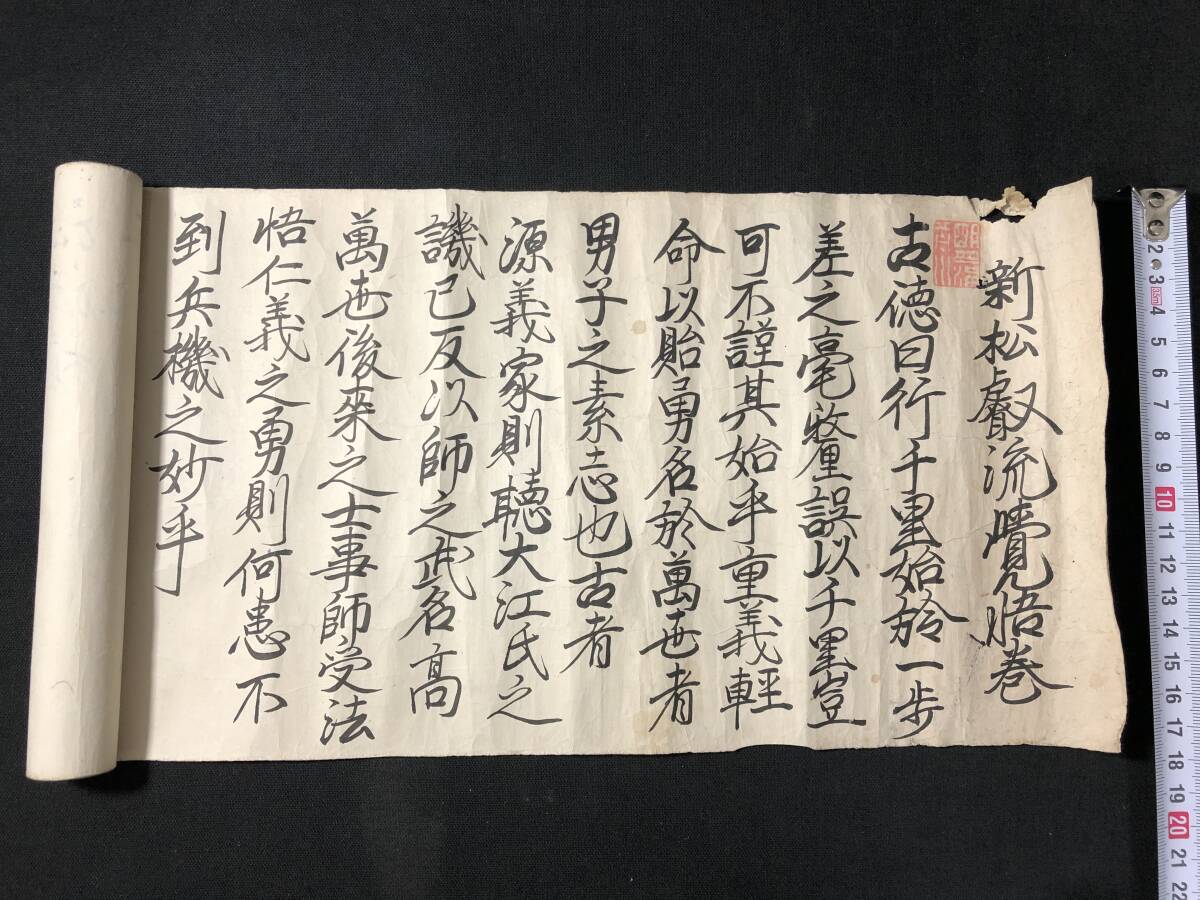 新松叡流覺悟巻
古徳曰行千里始於一歩
差之毫釐誤以千里豈
可不謹其始乎重義輕
命以貽勇名於萬世者
男子之素志也古者
源義家則聴大江氏之
譏已反以師之武名高
萬世後來之士事師受法
悟仁義之勇則何患不
到兵機之妙乎
2
3
4
5
6
7
8
9
10
11
12
13
14
15
16
17
18
19
20
21
22